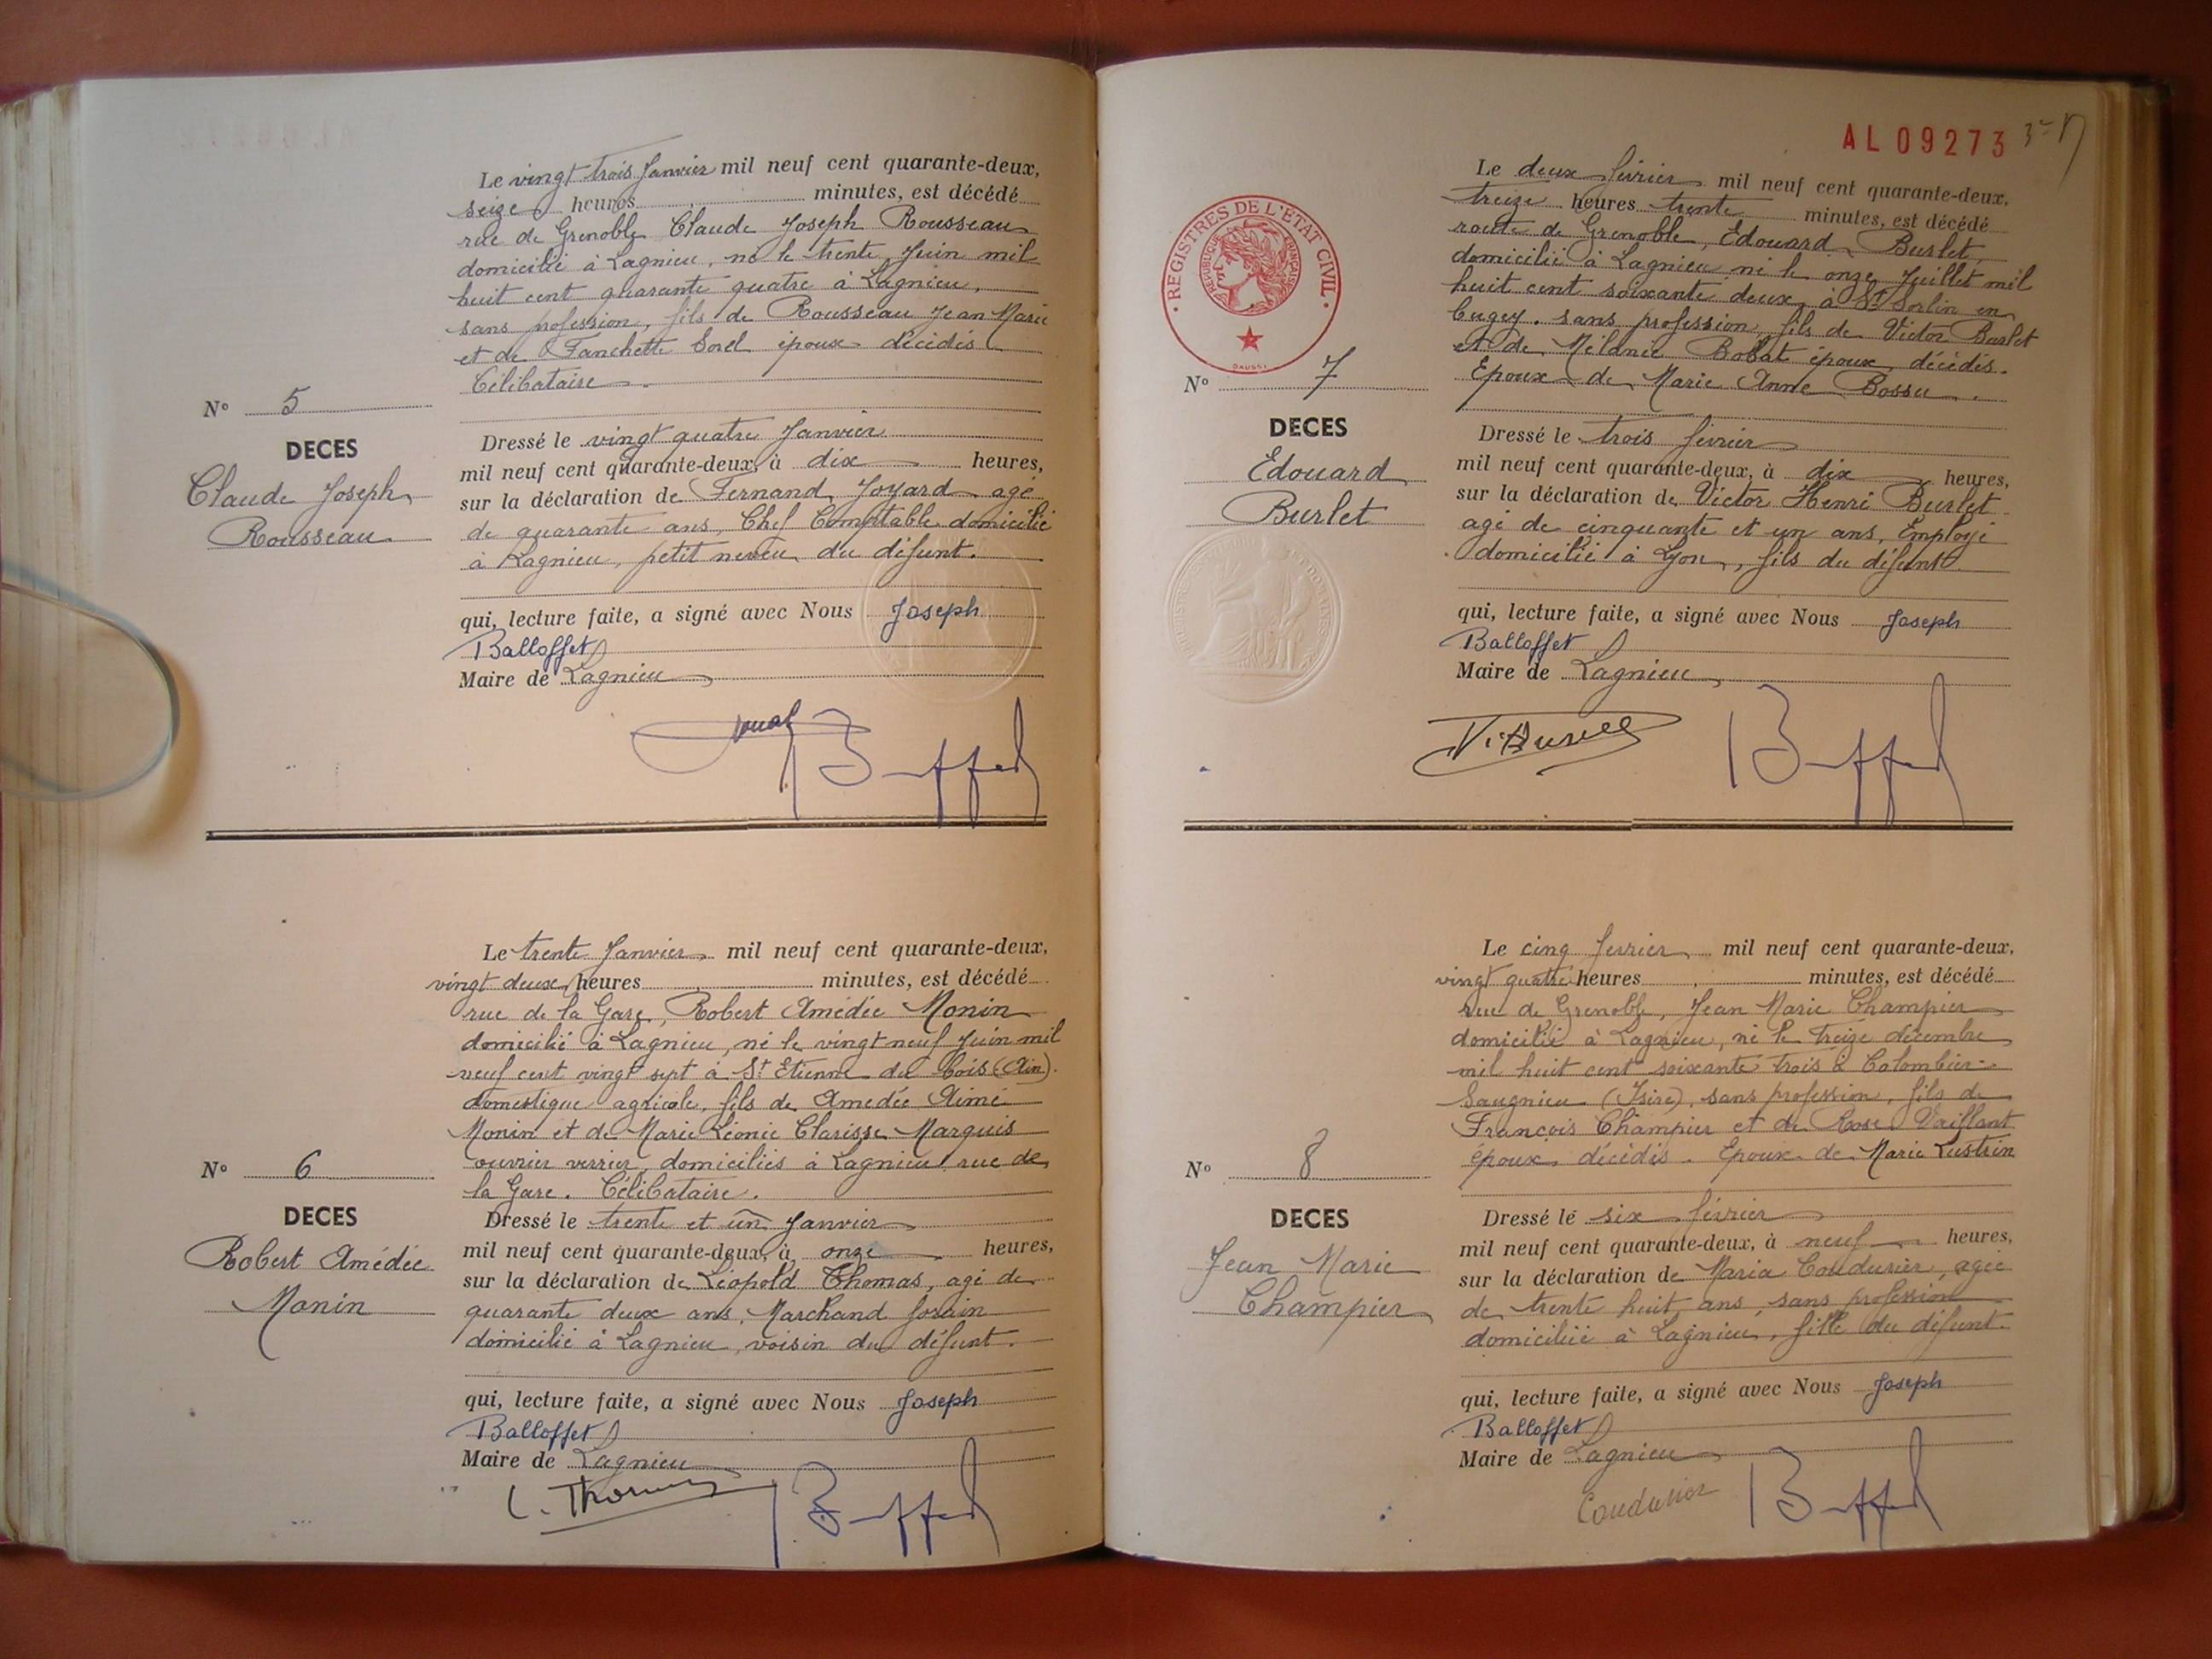 Le vingt trois Janvier mil neuf cent quarante-deux,
seize heures minutes, est décédé
rue de Grenoble Claude Joseph Rousseau
domicilié à Lagnieu, né le trente Juin mil
huit cent quarante quatre à Lagnieu,
sans profession, fils de Rousseau Jean Marie
et de Fanchette Sorel époux décédés
Célibataire.
N° 5
DECES
Claude Joseph
Rousseau
Dressé le vingt quatre Janvier
mil neuf cent quarante-deux, à dix heures,
sur la déclaration de Fernand Joyard agé
de quarante ans, Chef Comptable domicilié
à Lagnieu, petit neveu du défunt.
qui, lecture faite, a signé avec Nous Joseph
Balloffet
Maire de Lagnieu
Le trente Janvier mil neuf cent quarante-deux,
vingt deux heures minutes, est décédé
rue de la Gare, Robert Amédée Monin
domicilié à Lagnieu, né le vingt neuf Juin mil
neuf cent vingt sept à St Etienne du Bois (Ain).
domestique agricole, fils de Amedée Aimé
Monin et de Marie Léonie Clarisse Marquis
ouvrier verrier, domiciliés à Lagnieu rue de
la Gare. Célibataire.
N° 6
DECES
Robert Amédée
Monin
Dressé le trente et un Janvier
mil neuf cent quarante-deux, à onze heures,
sur la déclaration de Léopold Thomas, agé de
quarante deux ans, Marchand forain
domicilié à Lagnieu, voisin du défunt.
qui, lecture faite, a signé avec Nous Joseph
Balloffet
Maire de Lagnieu
L. Thomas
AL 09273
REGISTRES DE L'ETAT CIVIL
REPUBLIQUE FRANÇAISE
Le deux février mil neuf cent quarante-deux,
treize heures trente minutes, est décédé
route de Grenoble, Edouard Burlet,
domicilié à Lagnieu né le onze Juillet mil
huit cent soixante deux, à St Sorlin en
Bugey. sans profession, fils de Victor Burlet
et de Mélanie Bobat époux décédés.
Epoux de Marie Anne Bossu.
N° 7
DECES
Edouard
Burlet
Dressé le trois février
mil neuf cent quarante-deux, à dix heures,
sur la déclaration de Victor Henri Burlet
agé de cinquante et un ans, Employé
domicilié à Lyon, fils du défunt
qui, lecture faite, a signé avec Nous Joseph
Balloffet
Maire de Lagnieu
Le cinq fevrier mil neuf cent quarante-deux,
vingt quatre heures minutes, est décédé
rue de Grenoble, Jean Marie Champier
domicilié à Lagnieu, né le treize décembre
mil huit cent soixante trois à Colombier-
Saugnieu (Isère), sans profession, fils de
François Champier et de Rose Vaillant
époux décédés. Epoux de Marie Lustrin
N° 8
DECES
Jean Marie
Champier
Dressé le six février
mil neuf cent quarante-deux, à neuf heures,
sur la déclaration de Maria Coudurier, agée
de trente huit ans, sans profession
domiciliée à Lagnieu, fille du défunt.
qui, lecture faite, a signé avec Nous Joseph
Balloffet
Maire de Lagnieu
Coudurier